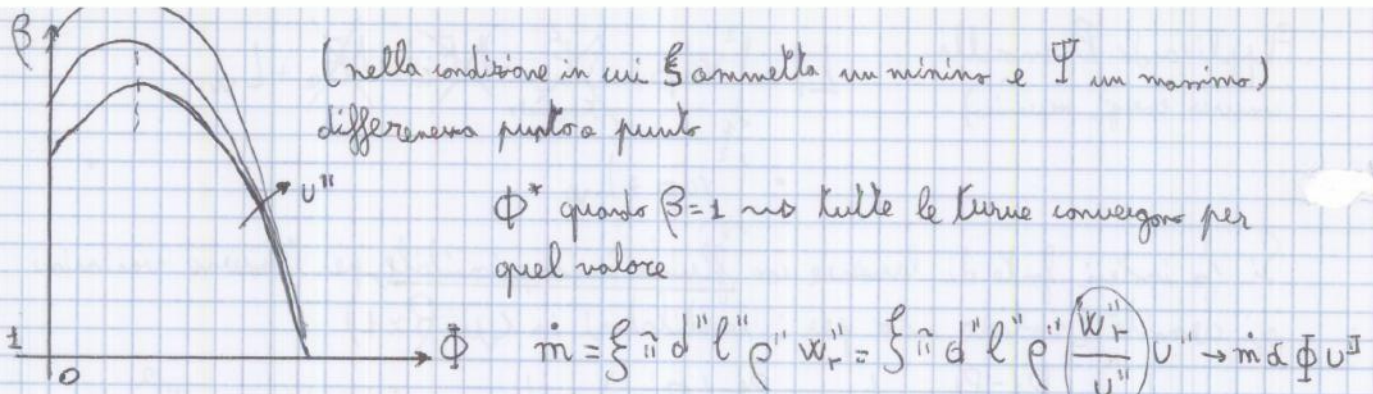 β
(nella condizione in cui ξ ammetta un minimo e Ψ un massimo)
differenza punto a punto
u"
Φ* quando β=1 → tutte le curve convergono per
quel valore
1
0
Φ
ṁ = ξ π d" l" ρ" w"r = ξ π d" l" ρ" w"r/u" u" → ṁ α Φ u"